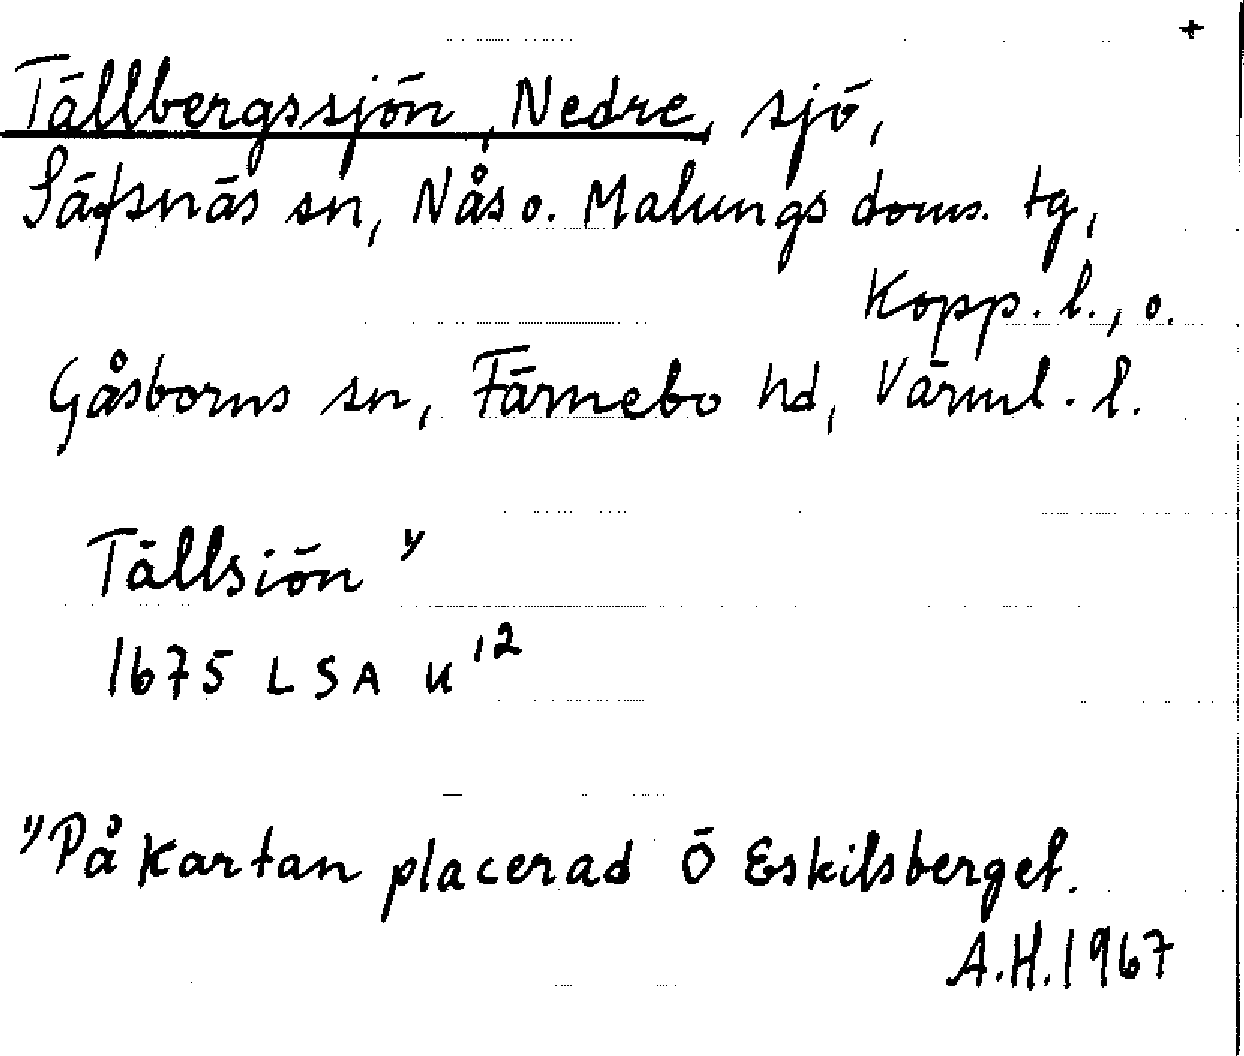 +
Tällbergssjön, Nedre, sjö,
Säfsnäs sn, Nås o. Malungs doms. tg,
Kopp. l., o.
Gåsborns sn, Färnebo hd, Värml. l.
Tällsiön 1)
1675 LSA U 12
1) På kartan placerad Ö Eskilsberget.
A.H. 1967